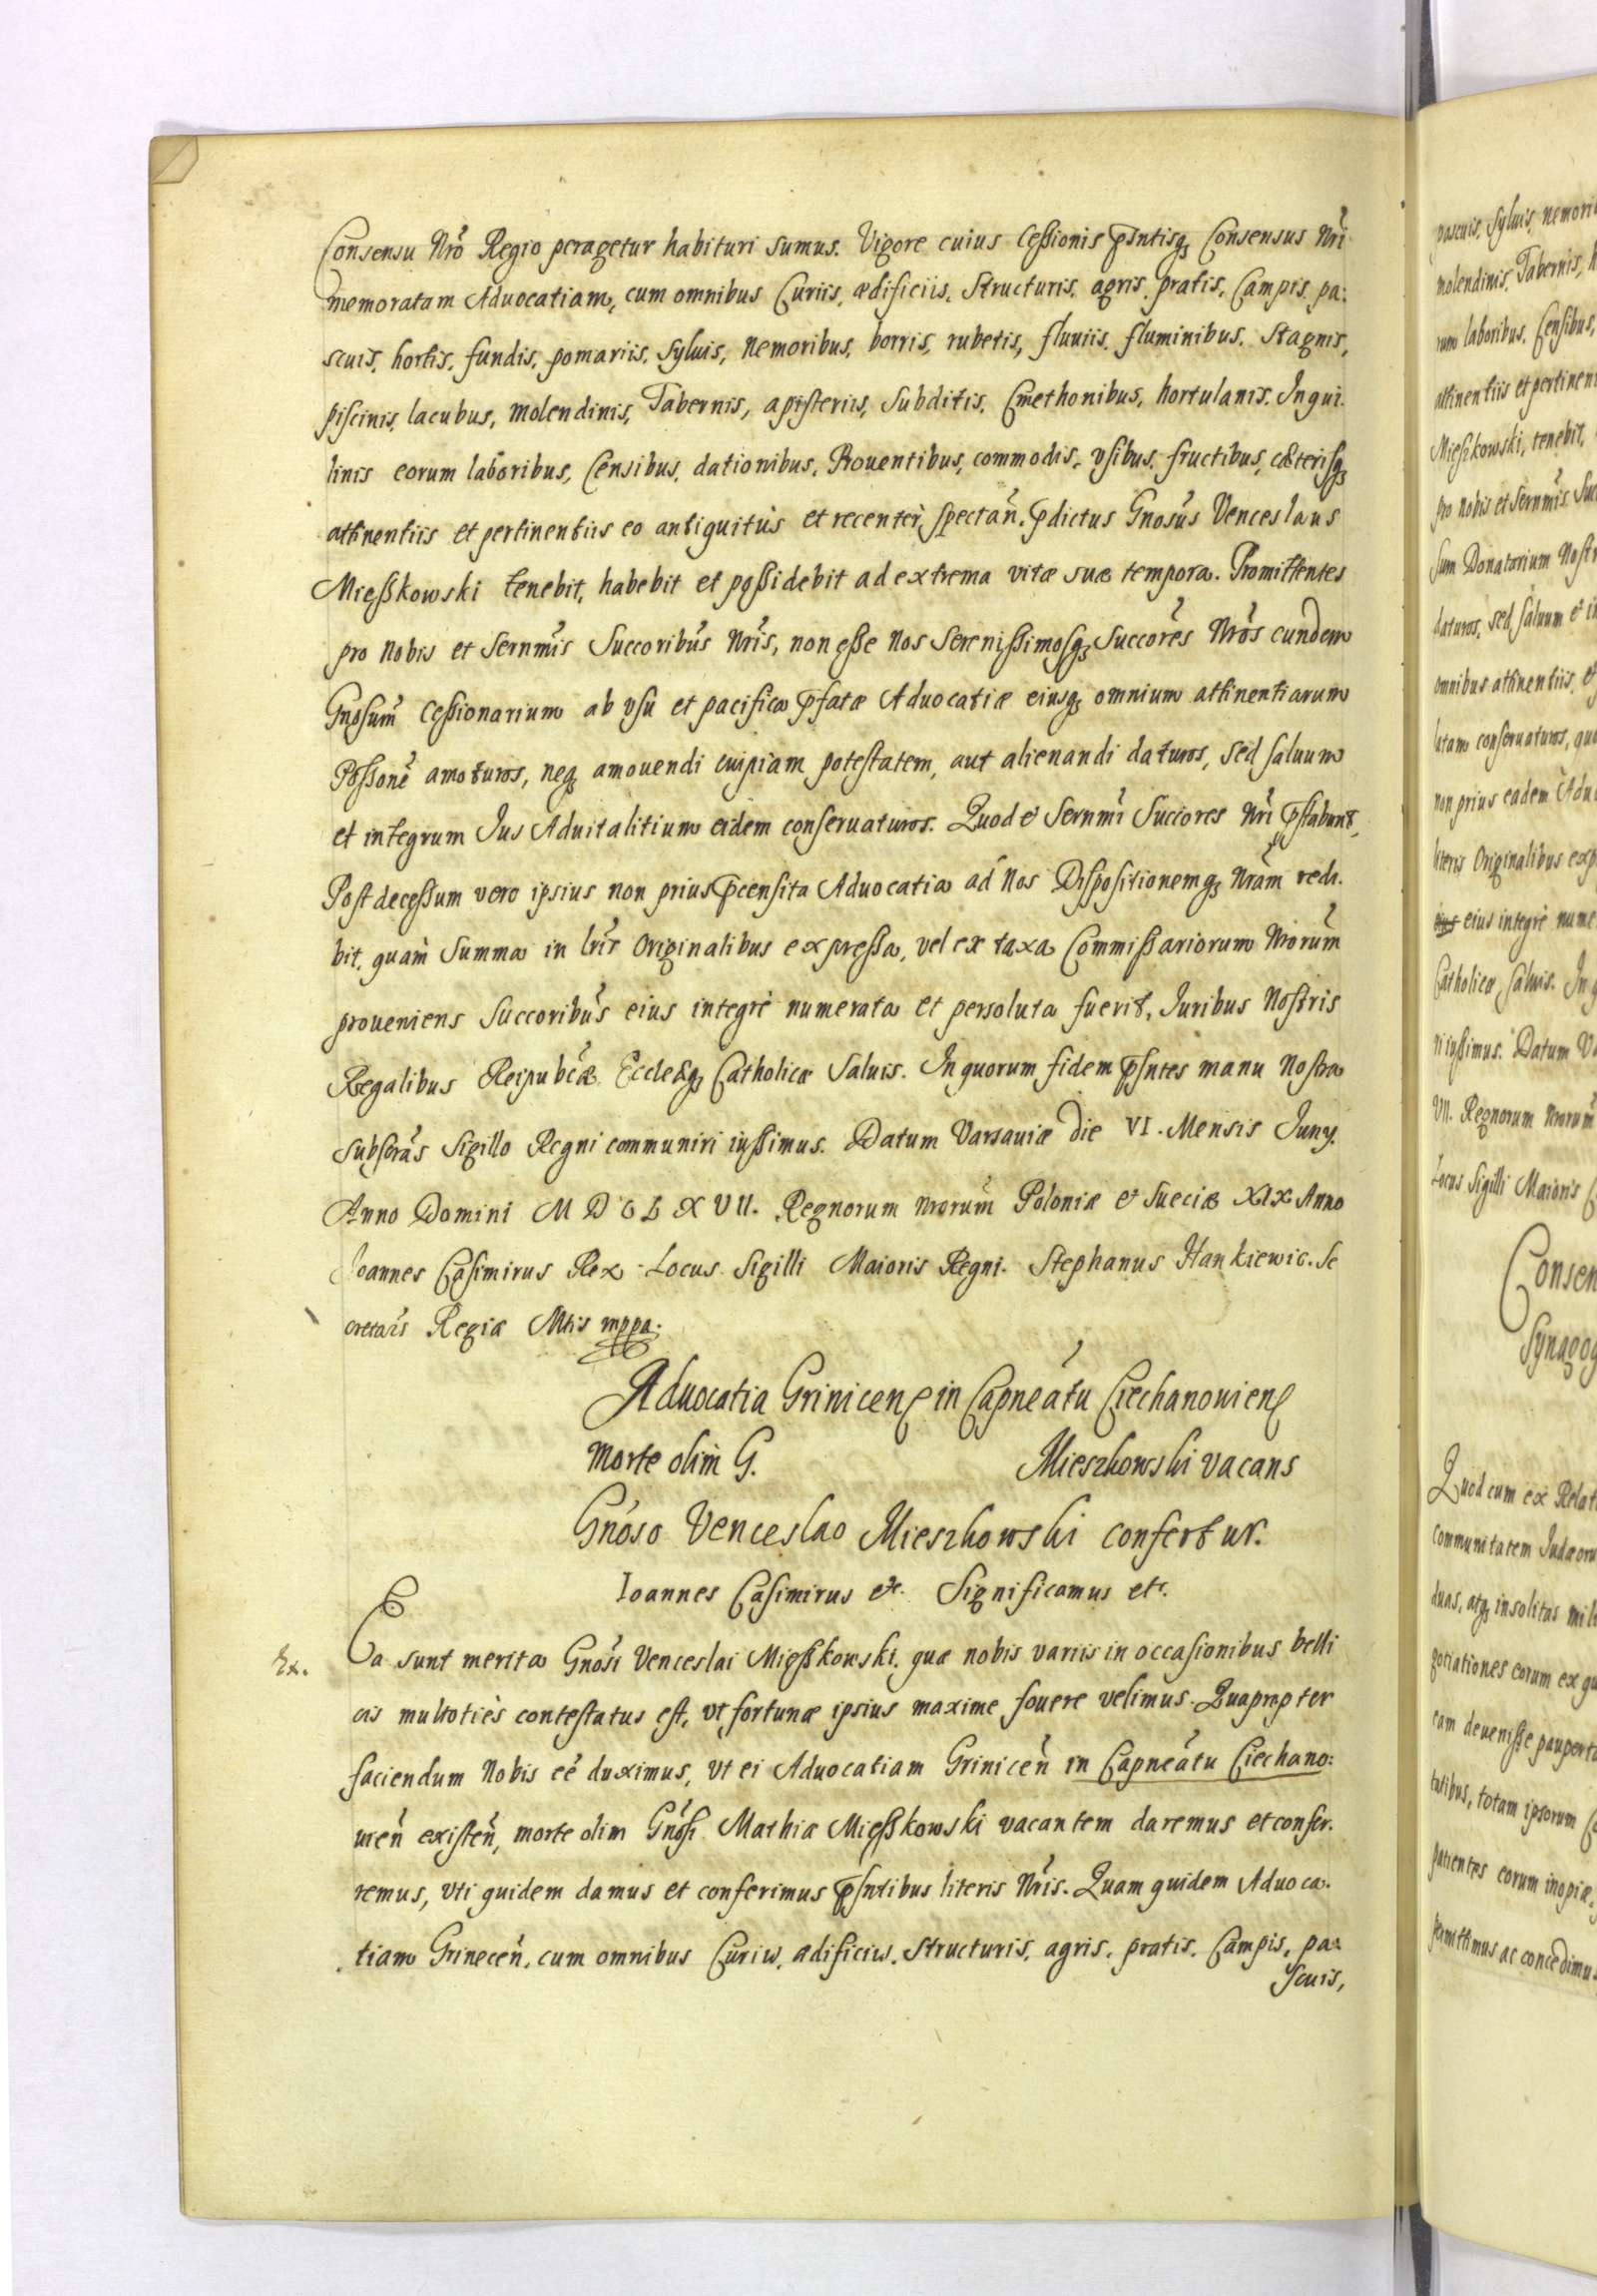 Consensu Nrõ Regio peragetur habituri sumus. Vigore cuius Cessionis p̃sntisq; Consensus Nri
memoratam Aduocatiam, cum omnibus Curiis, ædificiis, Structuris, agris, pratis, Campis, pa:
scuis, hortis, fundis, pomariis, Syluis, Nemoribus, borris, rubetis, fluuiis, fluminibus, Stagnis,
piscinis, lacubus, Molendinis, Tabernis, apisteriis, Subditis, Cmethonibus, hortulanis, Inqui
linis eorum laboribus, Censibus, dationibus, Prouentibus, commodis, vsibus, fructibus, cæterisq;
attinentiis et pertinentiis eo antiquitùs et recentèr, spectan̄. p̃dictus Gnosus Venceslaus
Mießkowski tenebit, habebit et poßidebit ad extrema vitæ suæ tempora. Promittentes
pro Nobis et Sernmis Succoribus Nris, non eße Nos Serenißimosq; Succores Nros eundem
Gnosum Ceßionarium ab vsu et pacifica p̃fatæ Aduocatiæ eiusq; omnium attinentiarum
Poßone amoturos, neq; amouendi cuipiam potestatem, aut alienandi daturos, sed saluum
et integrum Ius Aduitalitium eidem conseruaturos. Quod et Sernmi Succores Nri p̃stabunt,
Post deceßum vero ipsius non prius p̃censita Aduocatia ad Nos Dispositionemq; Nram redi.
bit, quàm Summa in lris Originalibus expreßa, vel ex taxa Commißariorum Nrorum
proueniens Succoribus eius integrè numerata et persoluta fuerit, Iuribus Nostris
Regalibus Reipubcæ Ecclæq; Catholicæ Saluis. In quorum fidem p̃sntes manu Nostra
Subscras Sigillo Regni communiri iußimus. Datum Varsauiæ die VI. Mensis Iuny.
Anno Domini M D C L X VII. Regnorum Nrorum Poloniæ et Sueciæ XIX Anno
Ioannes Casimirus Rex Locus Sigilli Maioris Regni. Stephanus Hankiewic. Se
cretars Regiæ Mtis mppa.
Aduocatia Grinicens in Capneatu Ciechanouiens
Morte olim G. Mieszkowski vacans
Gnoso Venceslao Mieszkowski confertur.
Ioannes Casimirus etc. Significamus etc.
Ex. Ea sunt merita Gnosi Venceslai Mießkowski, quæ nobis variis in occasionibus belli
cis multotiès contestatus est, vt fortunæ ipsius maxime fouere velimus. Quapropter
faciendum Nobis eé duximus, vt ei Aduocatiam Grinicen̄ in Capneatu Ciechano:
uien̄ existen̄, morte olim Gnosi Mathiæ Mießkowski vacantem daremus et confer.
remus, vti quidem damus et conferimus p̃sntibus literis Nris. Quam quidem Aduoca.
tiam Grinecen̄. cum omnibus Curiis, ædificiis, Structuris, agris, pratis, Campis, pa:
scuis,
pascuis, Syluis, nemori
molendinis, Tabernis, h
rum laboribus, Censibus,
attinentiis et pertinen
Mießkowski, tenebit,
pro nobis et Sernmis Suc
sum Donatarium Nostr
daturos, sed saluum et in
omnibus attinentiis, et
latam conseruaturos, qua
non prius eadem Adu
literis Originalibus exp
eius integrè nume
Catholicæ, Saluis. In q
ri iußimus. Datum Va
VII. Regnorum Nrorum
Locus Sigilli Maioris
Consen
Synagog
Quod cum ex Relat
communitatem Iudæoru
duas, atq; insolitas mili
gotiationes eorum ex qu
eam deueniße pauperta
tatibus, totam ipsorum
patientes eorum inopiæ,
permittimus ac concedimus